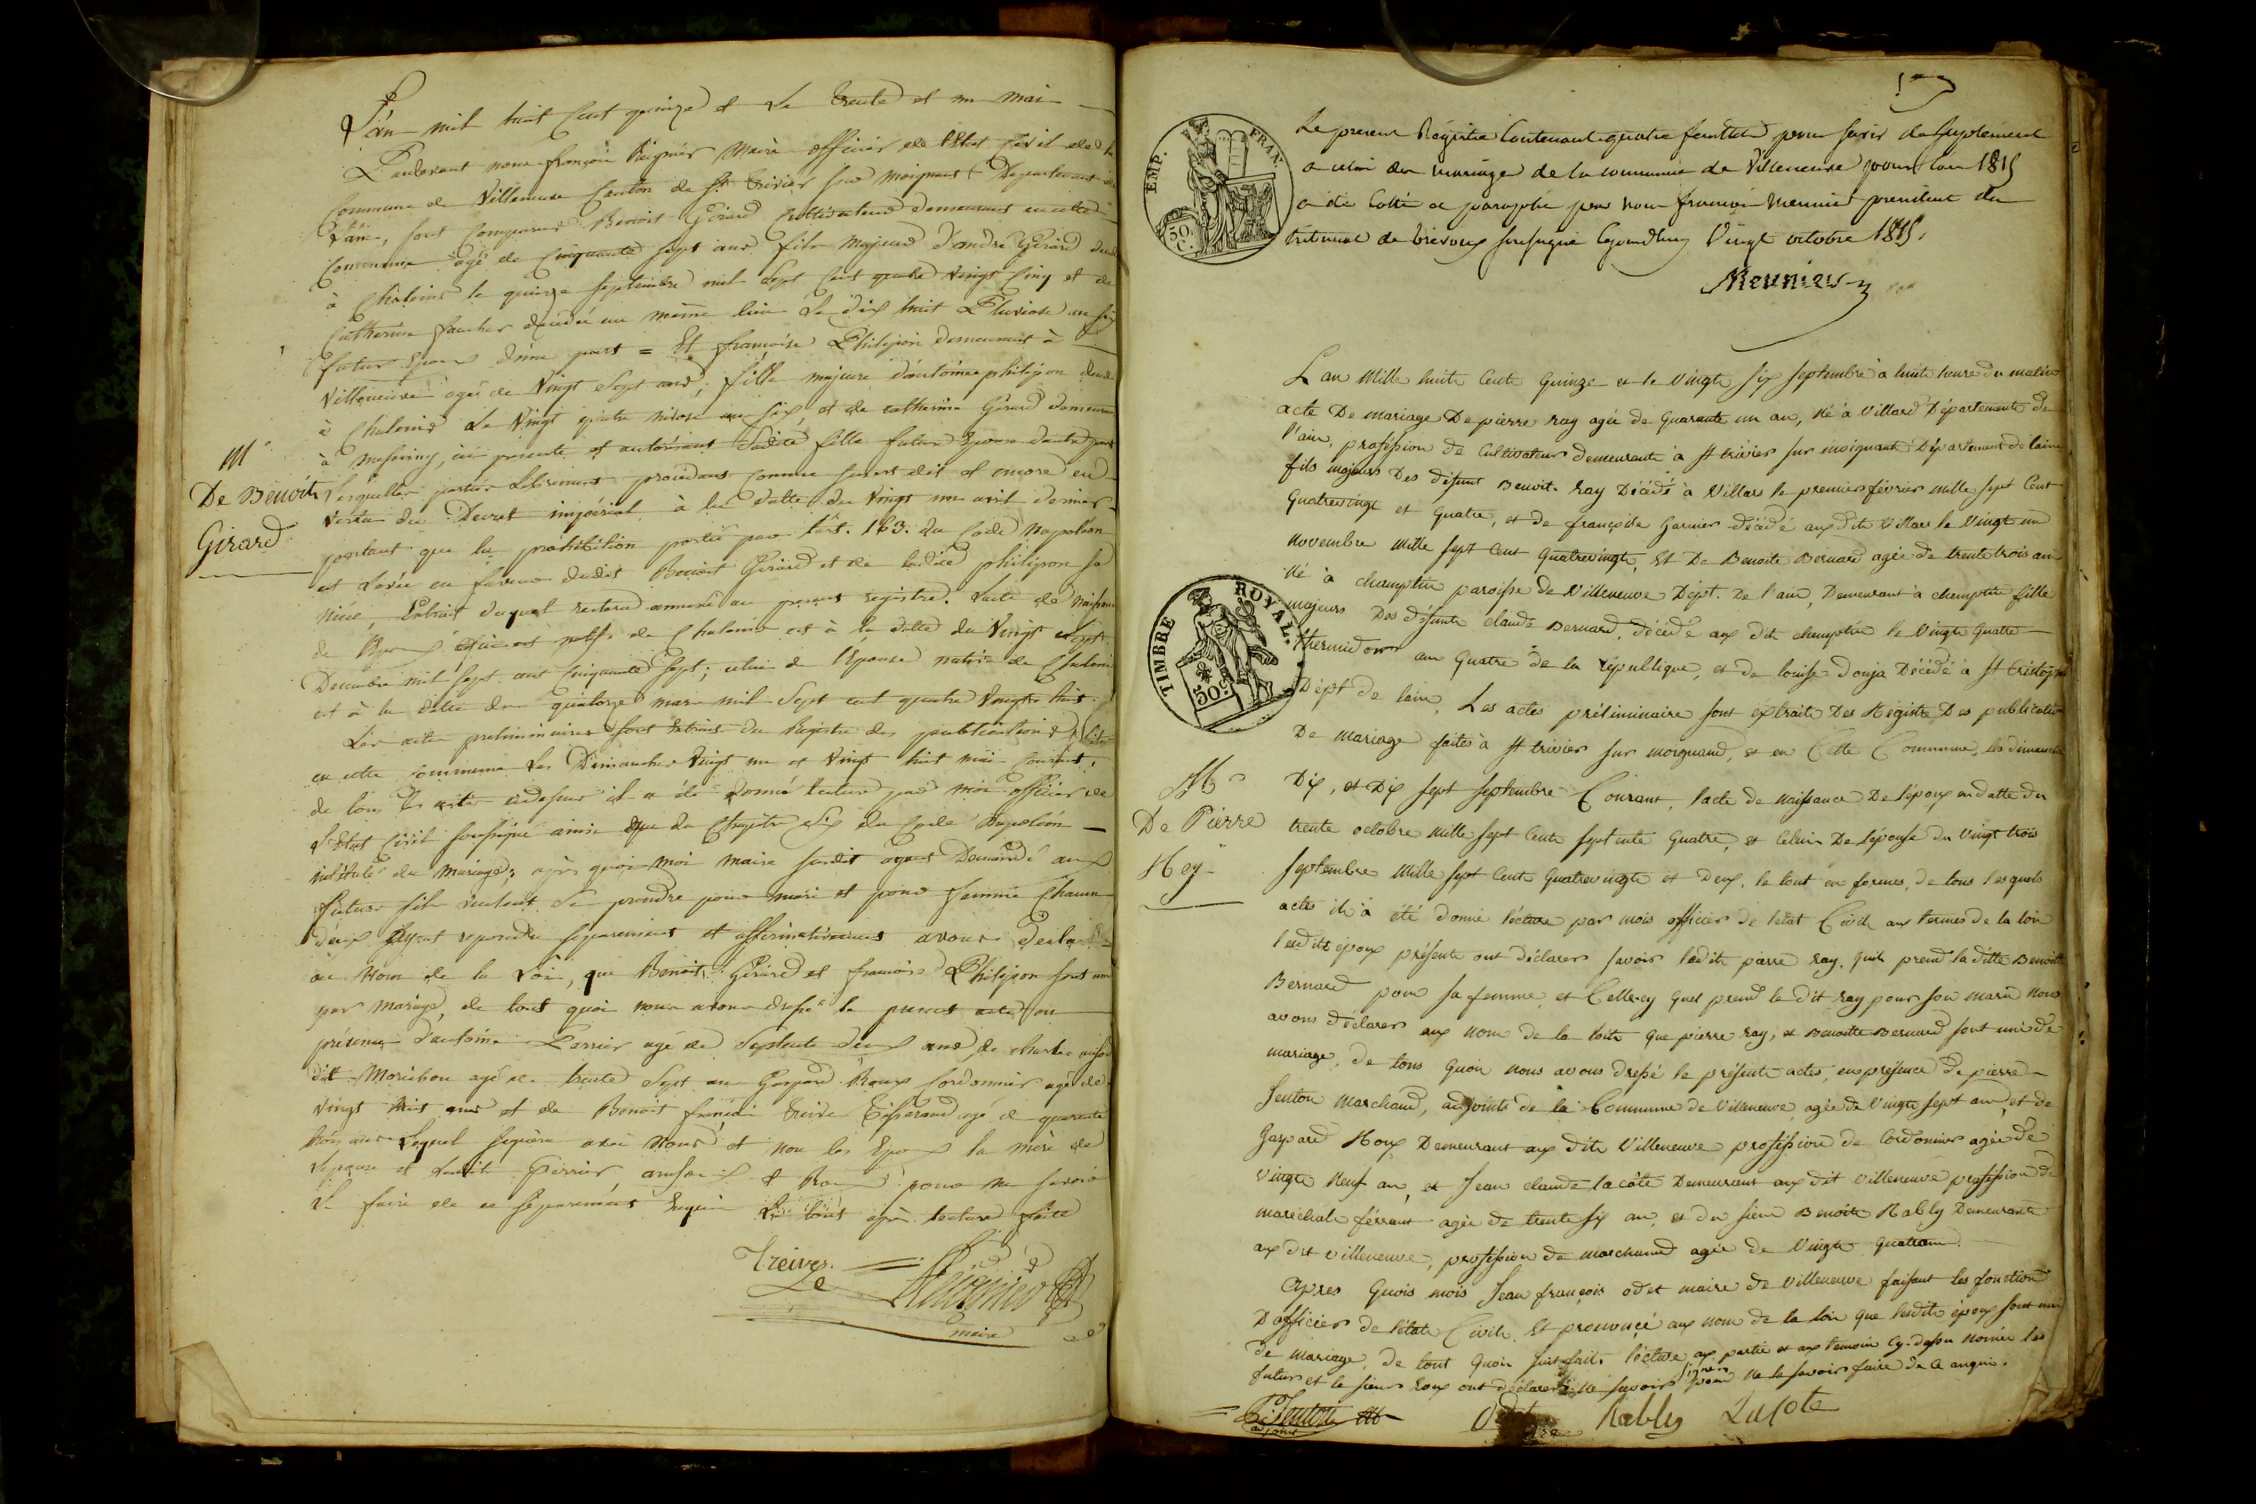 L'an mil huit Cent quinze et Le trente et un mai
Pardevant nous françois Maire officier de l'Etat Civil de la
Commune de Villeneuve Canton de St trivier sur moignant Département de
l'ain, sont comparus Benoit Gérard Cultivateur demeurant en cette
Commune agé de Cinquante sept ans fils majeur d'andré Gérard
à Chaleins le quinze septembre mil Sept Cent quatre Vingt Cinq et de
Catherine décédée au même lieu Le dix huit Pluviose an six
futur Epoux d'une part = Et françoise Philipon demeurant à
Villeneuve agée de Vingt Sept ans, fille majeure d'antoine philipon
à Chaleins Le Vingt quatre nivose an six et de catherine Gérard demeurant
à Messimy, ici présente et autorisant Ladite fille future Epouse d'autre part
Lesquelles parties Librement procédant comme susdit et encore en
Vertu du Décret impérial à la datte du Vingt un avril dernier
portant que la prohibition portée par l'art. 163. du Code Napoléon
est Levée en faveur dudit Benoit Gérard et de ladite philipon sa
nièce, Extrait duquel restera annexé au présent registre. Lacte de naissance
de natif de Chaleins est à la datte du Vingt
Décembre mil sept cent cinquante sept; celui de l'Epouse native de Chaleins
est à la datte du quatorze mars mil Sept cent quatre Vingt huit.
Les actes préliminaires sont Extraits du Registre des publications
en cette commune Les Dimanches Vingt un et Vingt huit mai Courant,
de tous Les actes cidessus il a été donné lecture par moi officier de
L'Etat Civil soussigné ainsi que du Chapitre Six du Code Napoléon
intitulé du Mariage; après quoi moi maire susdit ayant Demandé aux
futurs s'ils veulent Se prendre pour mari et pour femme Chacun
d'eux ayant repondu séparément et affirmativement avons déclaré
au Nom de la Loi, que Benoit Gérard et françoise Philipon sont unis
par Mariage, de tout quoi nous avons dressé le présent acte en
présence d'antoine Perrier agé de Septante Deux ans, de
dit Morichou agé de trente Sept ans Gaspard Roux Cordonnier agé de
Vingt huit ans et de Benoit françois Treive Tisserand agé de quarante
trois ans Lequel Signera avec Nous et non les Epoux la mère de
L'epouse et Ledit Perrier, et Roux pour ne savoir
Le faire de ce séparément Requis Le tout après lecture faite
Treives.
maire
M
De Benoit
Girard
Le present Régistre Contenant quatre feuillets pour servir de supplement
a celui des mariages de la commune de Villeneuve pour lan 1815
a été Cotté et paraphé par nous françois Meunier president du
tribunal de trevoux soussigné Vingt octobre 1815.
Meunier
EMP. FRAN.
50. C.
L'an Mille huite Cente Quinze et le Vingte six septembre à huite heure du matin
acte De mariage De pierre ray agée de Quarante un an, Né à Villard Départemente de
l'ain, profession de Cultivateur demeurante à St trivier sur moignant Département de laine
fils majeurs Des défunt Benoit ray Décédé à Villars le premier février mille sept Cent
Quatrevingt et Quatre, et de françoise Garnier décédé aux dite Villars le Vingt un
novembre mille sept Cent Quatrevingte, Et De Benoite Bernard agée de trente trois an
Né à champtin paroisse de Villeneuve Dépt. De l'ain, Demeurant à champtin fille
majeurs Des défunte claude Bernard, décédé aux dite champtin le Vingte Quatre
thermidor an Quatre de la république, et de louise Décédé à St
Dépt de lain, Les actes préliminaire sont extraite Des Registre Des publication
De mariage faites à St trivier sur moignand, et en Cette Commune, les dimanche
Dix, et Dix sept septembre Courant, l'acte de naissance De l'époux en datte du
trente octobre mille sept Cente septente Quatre, et Celui De l'épouse du Vingt trois
septembre Mille sept Cente Quatrevingte et Deux, le tout en formes, de tous lesquels
actes ih à été donné lécture par mois officier de l'etat Civih aux termes de la loix
lesdits époux présente ont déclarer savoir ledite pierre ray, quih prend la ditte Benoite
Bernard pour sa femme, et Celle-cy quel prend le dit ray pour son mari Nous
avons déclarer aux nom de la loite que pierre ray, et Benoite Bernard sont uni de
mariage, de tous Quoi nous avons dressé le présente actes, en présence de pierre
Jenton marchand, adjointe de la Commune de Villeneuve agée de Vingte sept an, et de
Gaspard Roux Demeurant aux dite Villeneuve profession de Cordonnier agée de
Vingte Neuf an, et Jean claude lacôte Demeurant aux dit villeneuve profession de
maréchale férrant agée de trente six an, et du sieur Benoite Rably Demeurante
aux dit Villeneuve, profession de marchand agée de Vingte Quatre an.
Apres Quois mois Jean françois odet maire de Villeneuve faisant les fonction
D'officier de l'état Civih, Et prononcé aux nom de la loix que lesdite époux sont uni
de mariage, de tout Quoi lécture aux partie et aux temoin Cy-dessu nomée les
futur et le sieur roux ont déclarer ne savoir signer Ne le savoir faire de Ce anquis.
TIMBRE ROYAL.
50 c
M
De Pierre
Rey
P. Jenton
adjoint
Odet
Rably Lacote